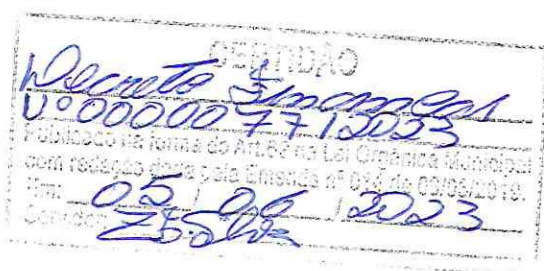 CERTIDÃO
Decreto Financeiro
Nº 00000077/2023
Publicado na forma do Art. 82 da Lei Orgânica Municipal
com redação dada pela Emenda nº
Em: 05 / 06 / 2023